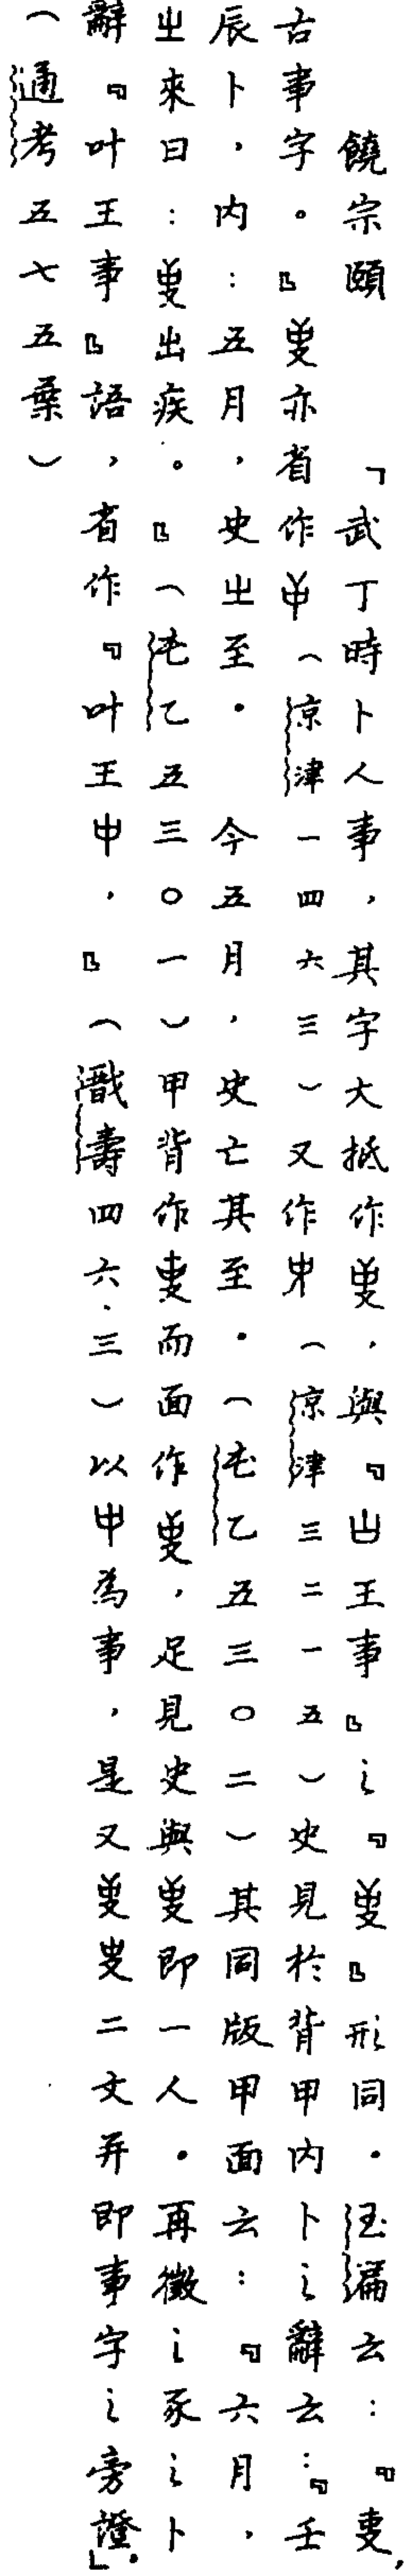 饒宗頤 「武丁時卜人事，其字大抵作𠭏，與『𠙹王事』之『𠭏』形同。玉篇云：『叓，
古事字。』𠭏亦省作（京津一四六三）又作（京津三二一五）史見於背甲內卜之辭云：『壬
辰卜，內：五月，史㞢至。 今五月，史亡其至。（屯乙五三〇二）其同版甲面云：『六月，
㞢來曰：出疾。』（屯乙五三〇一）甲背作叓而面作，足見史與即一人。再徵之豕之卜
辭『叶王事』語，省作『叶王中，』（戩壽四六·三）以中為事，是又二文并即事字之旁證」。
（通考五七五葉）